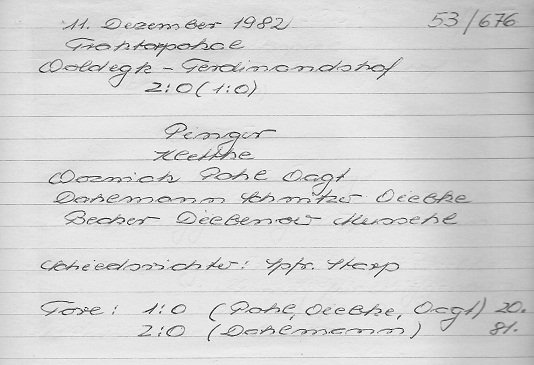 11. Dezember 1982 53/676
Traktorpokal
Woldegk - Ferdinandshof
2:0 (1:0)
Pingur
Klethke
Wozniak Pohl Vagt
Dahlmann Schmitz Diebke
Becker Diebenow Muschel
Schiedsrichter: Spfr. Starp
Tore: 1:0 (Pohl, Diebke, Vagt) 20.
2:0 (Dahlmann) 81.